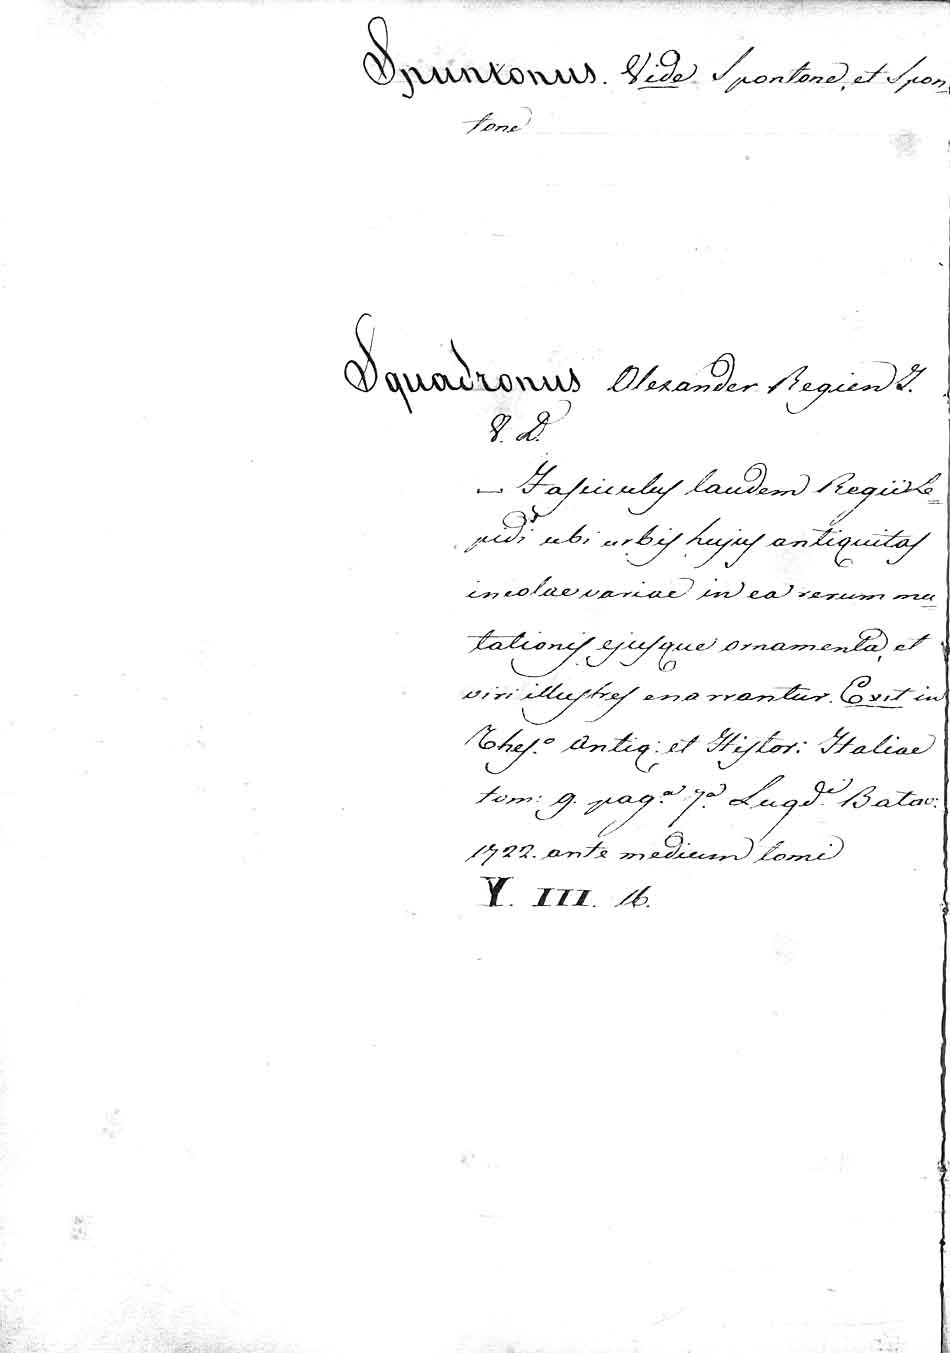 Spuntonus. Vide Spontone, et Spon_
tone
Squadronus Alexander Regien J.
V. D.
— Fasciculus laudem Regii Le_
pidi ubi urbis hujus antiquitas
incolae variae in ea rerum mu_
tationis ejusque ornamenta, et
viri illustres enarrantur. Exit in
Thes.º Antiq: et Histor: Italiae
tom: 9. pag.ª 7.ª Lugd.i Batav:
1722. ante medium tomi
Y. III. 16.